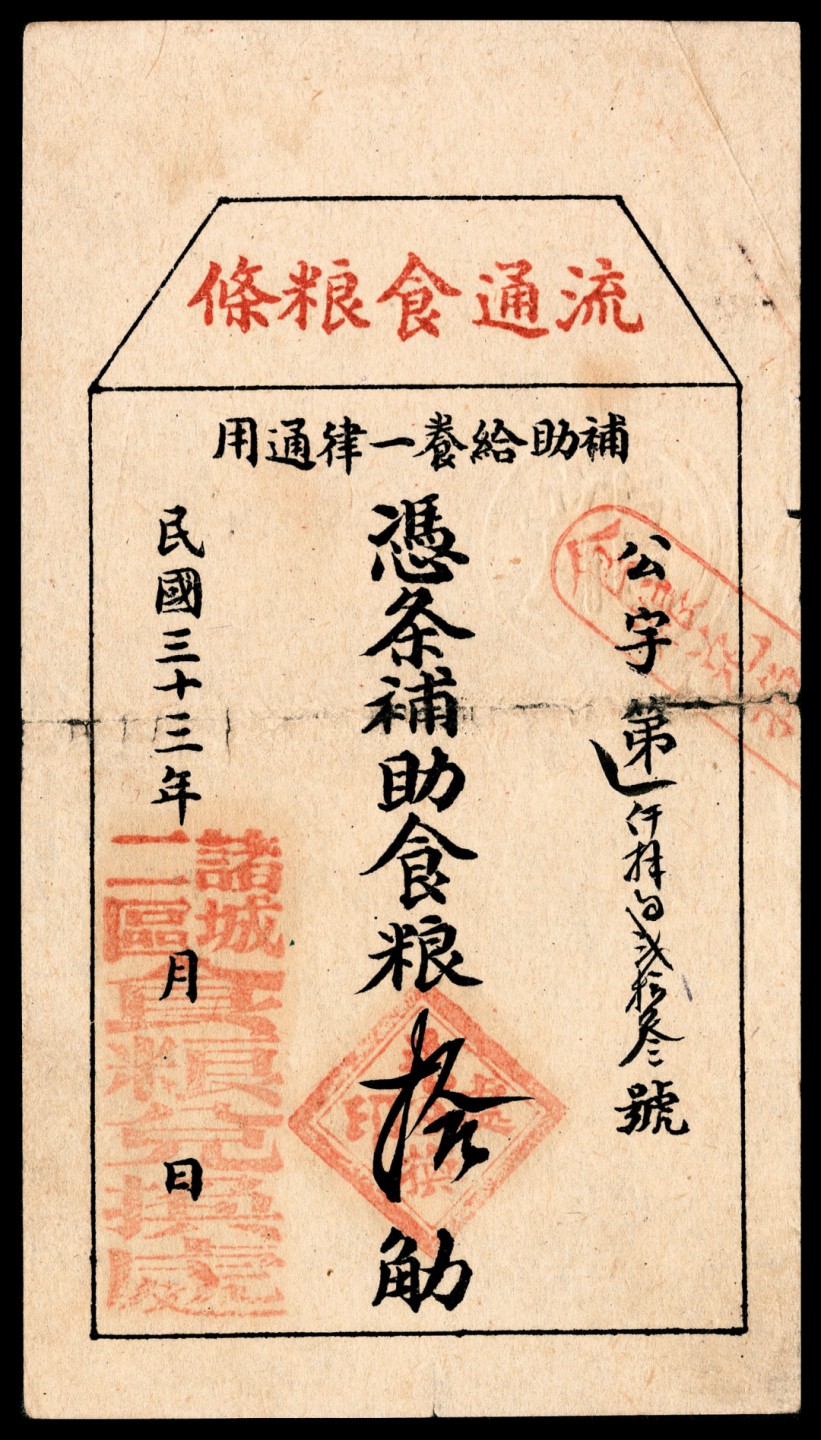 流通食粮條
補助給養一律通用
公字第一仟捌百弍拾叁號
憑条補助食粮拾觔
民國三十三年 月 日
諸城
二區
食粮兌換處
印